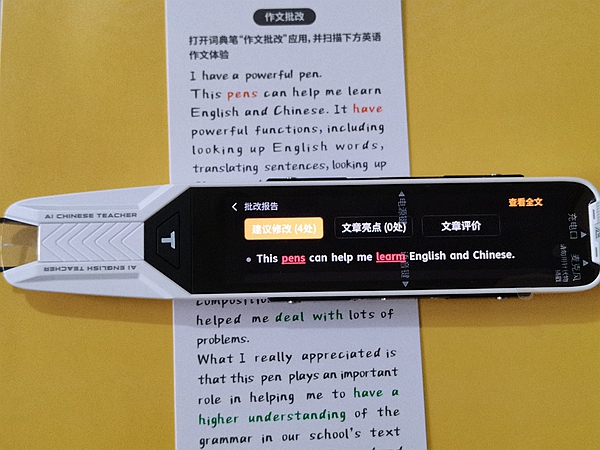 作文批改
打开词典笔“作文批改”应用,并扫描下方英语
作文体验
I have a powerful pen.
This pens can help me learn
English and Chinese. It have
powerful functions, including
looking up English words,
translating sentences, looking up
AI CHINESE TEACHER
AI ENGLISH TEACHER
T
批改报告
查看全文
建议修改 (4处)
文章亮点 (0处)
文章评价
This pens can help me learn English and Chinese.
电源键
充电口
麦克风
helped me deal with lots of
problems.
What I really appreciated is
that this pen plays an important
role in helping me to have a
higher understanding of the
grammar in our school's text